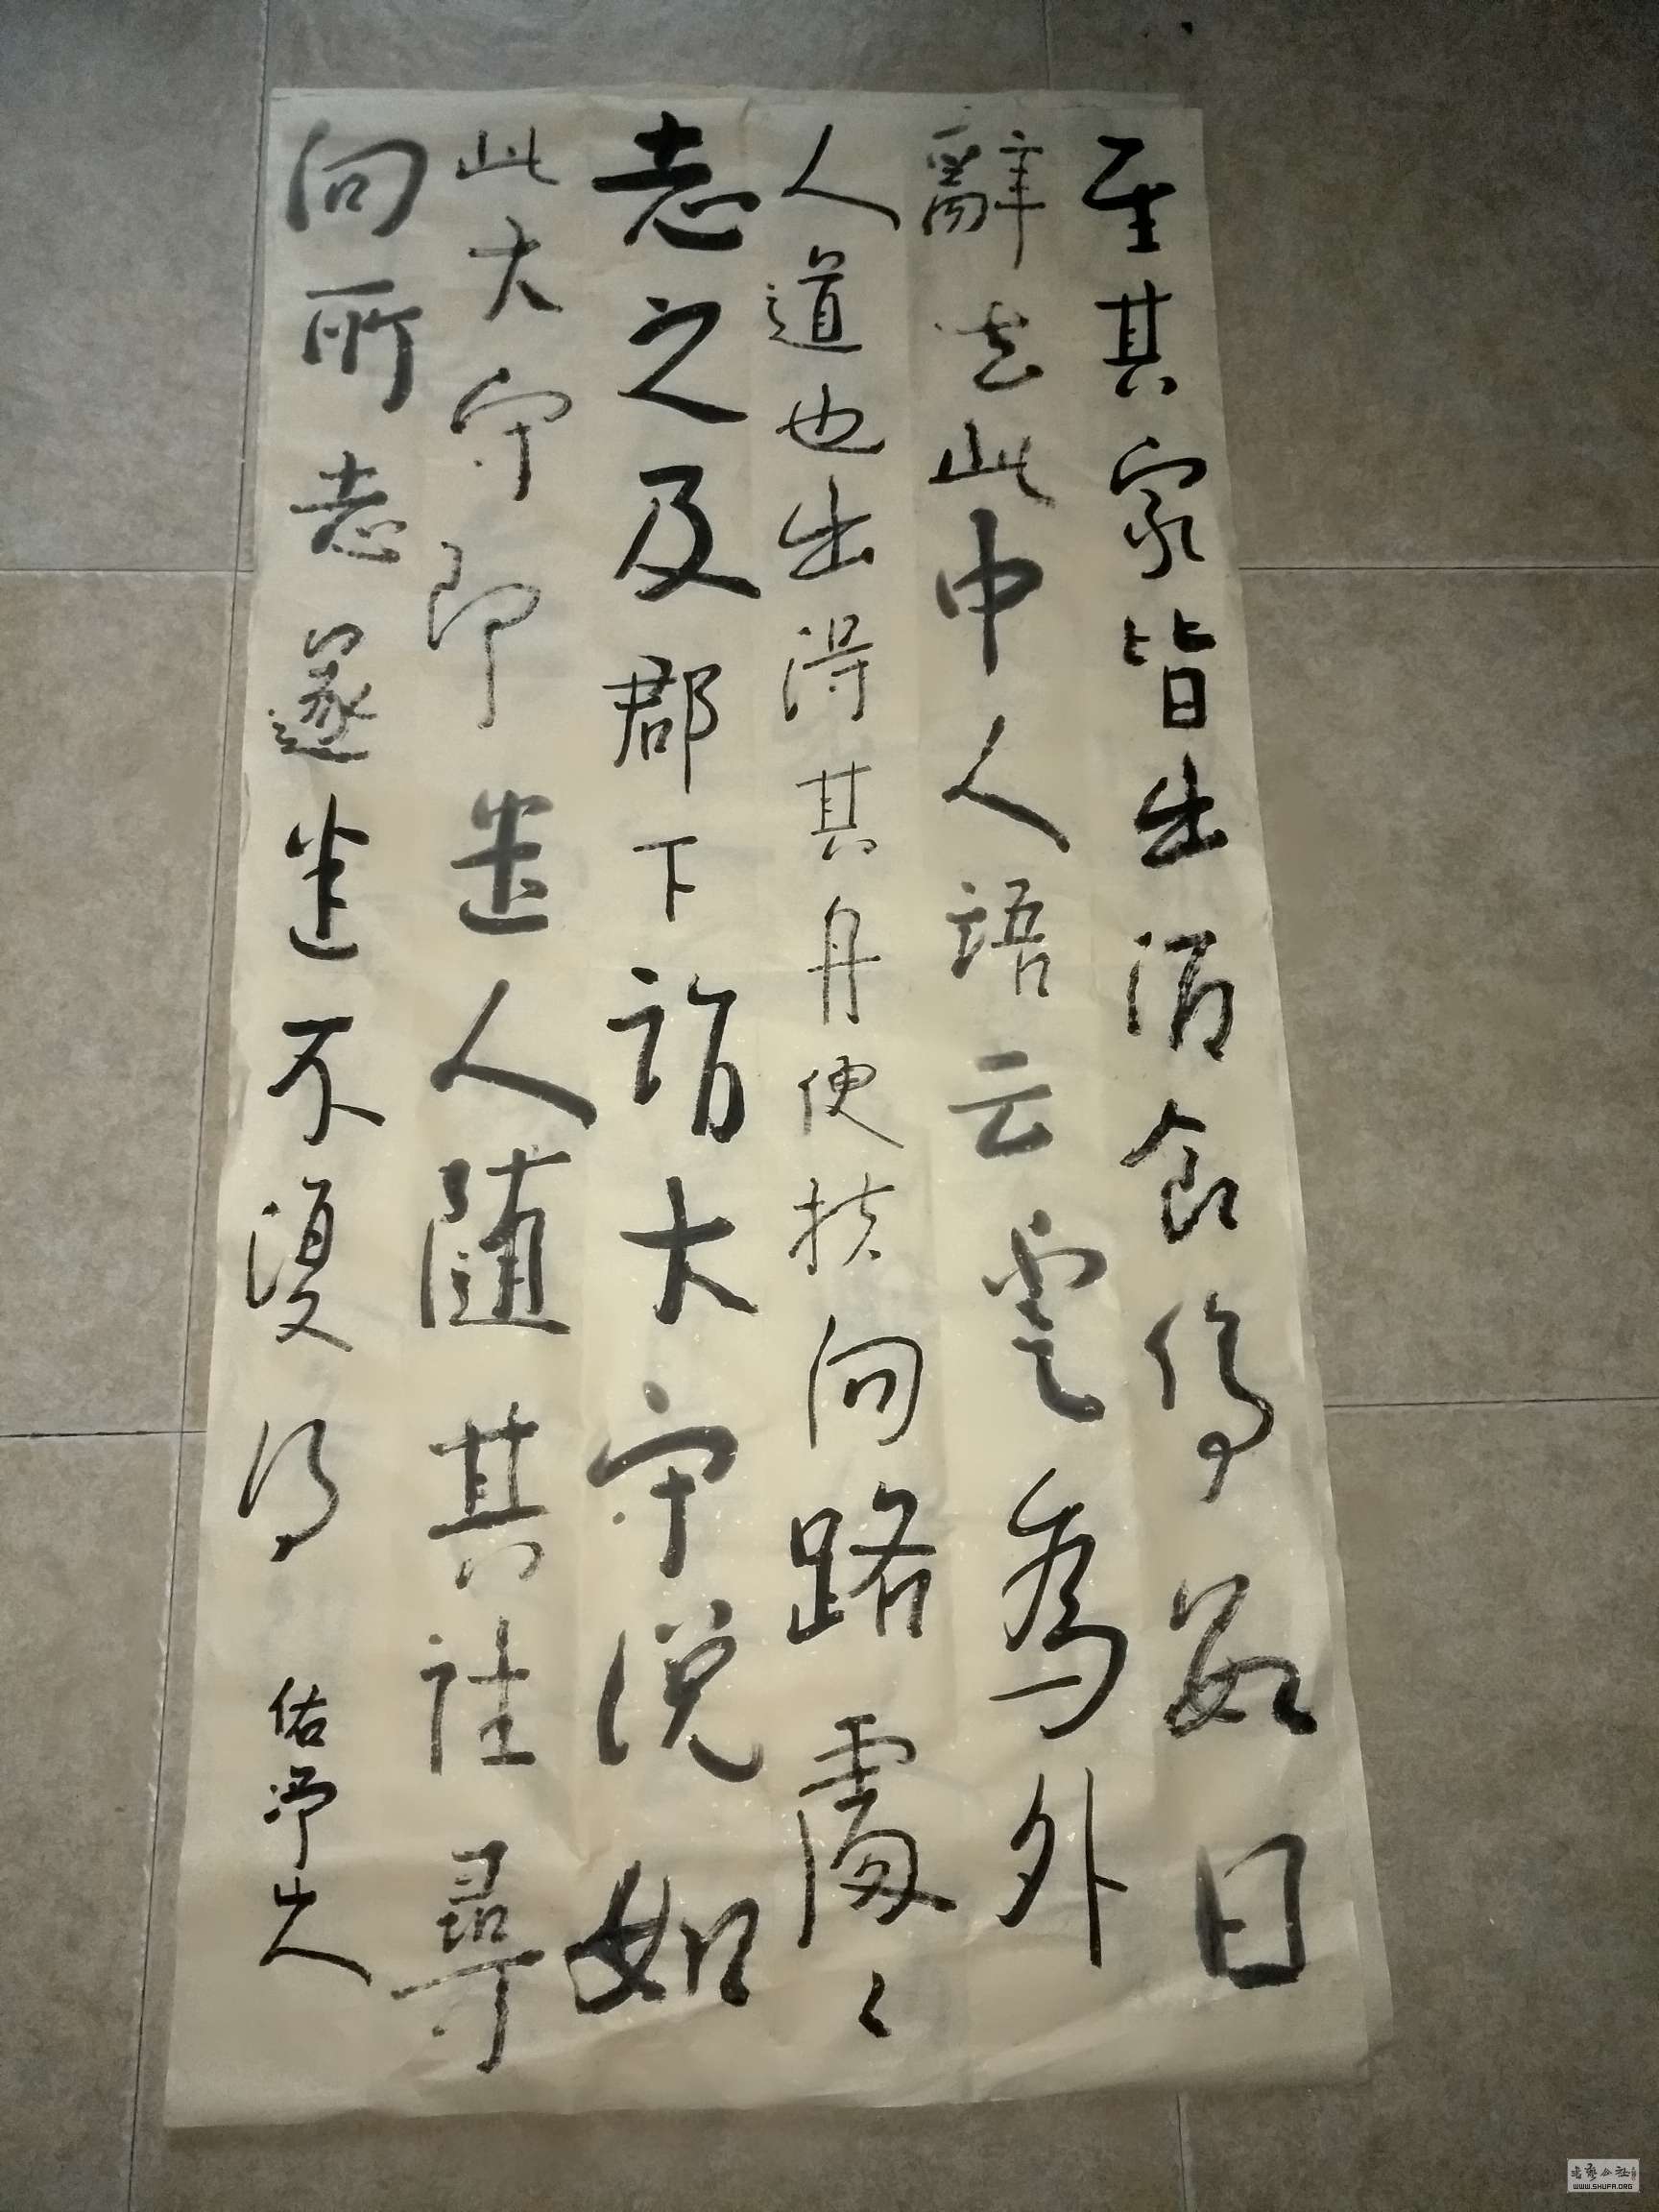 至其家皆出酒食停數日
辭去此中人語云不足為外
人道也出得其舟便扶向路處々
志之及郡下詣大守說如
此大守即遣人随其往尋
向所志遂迷不復得
佑山人
WWW.SHUFA.ORG